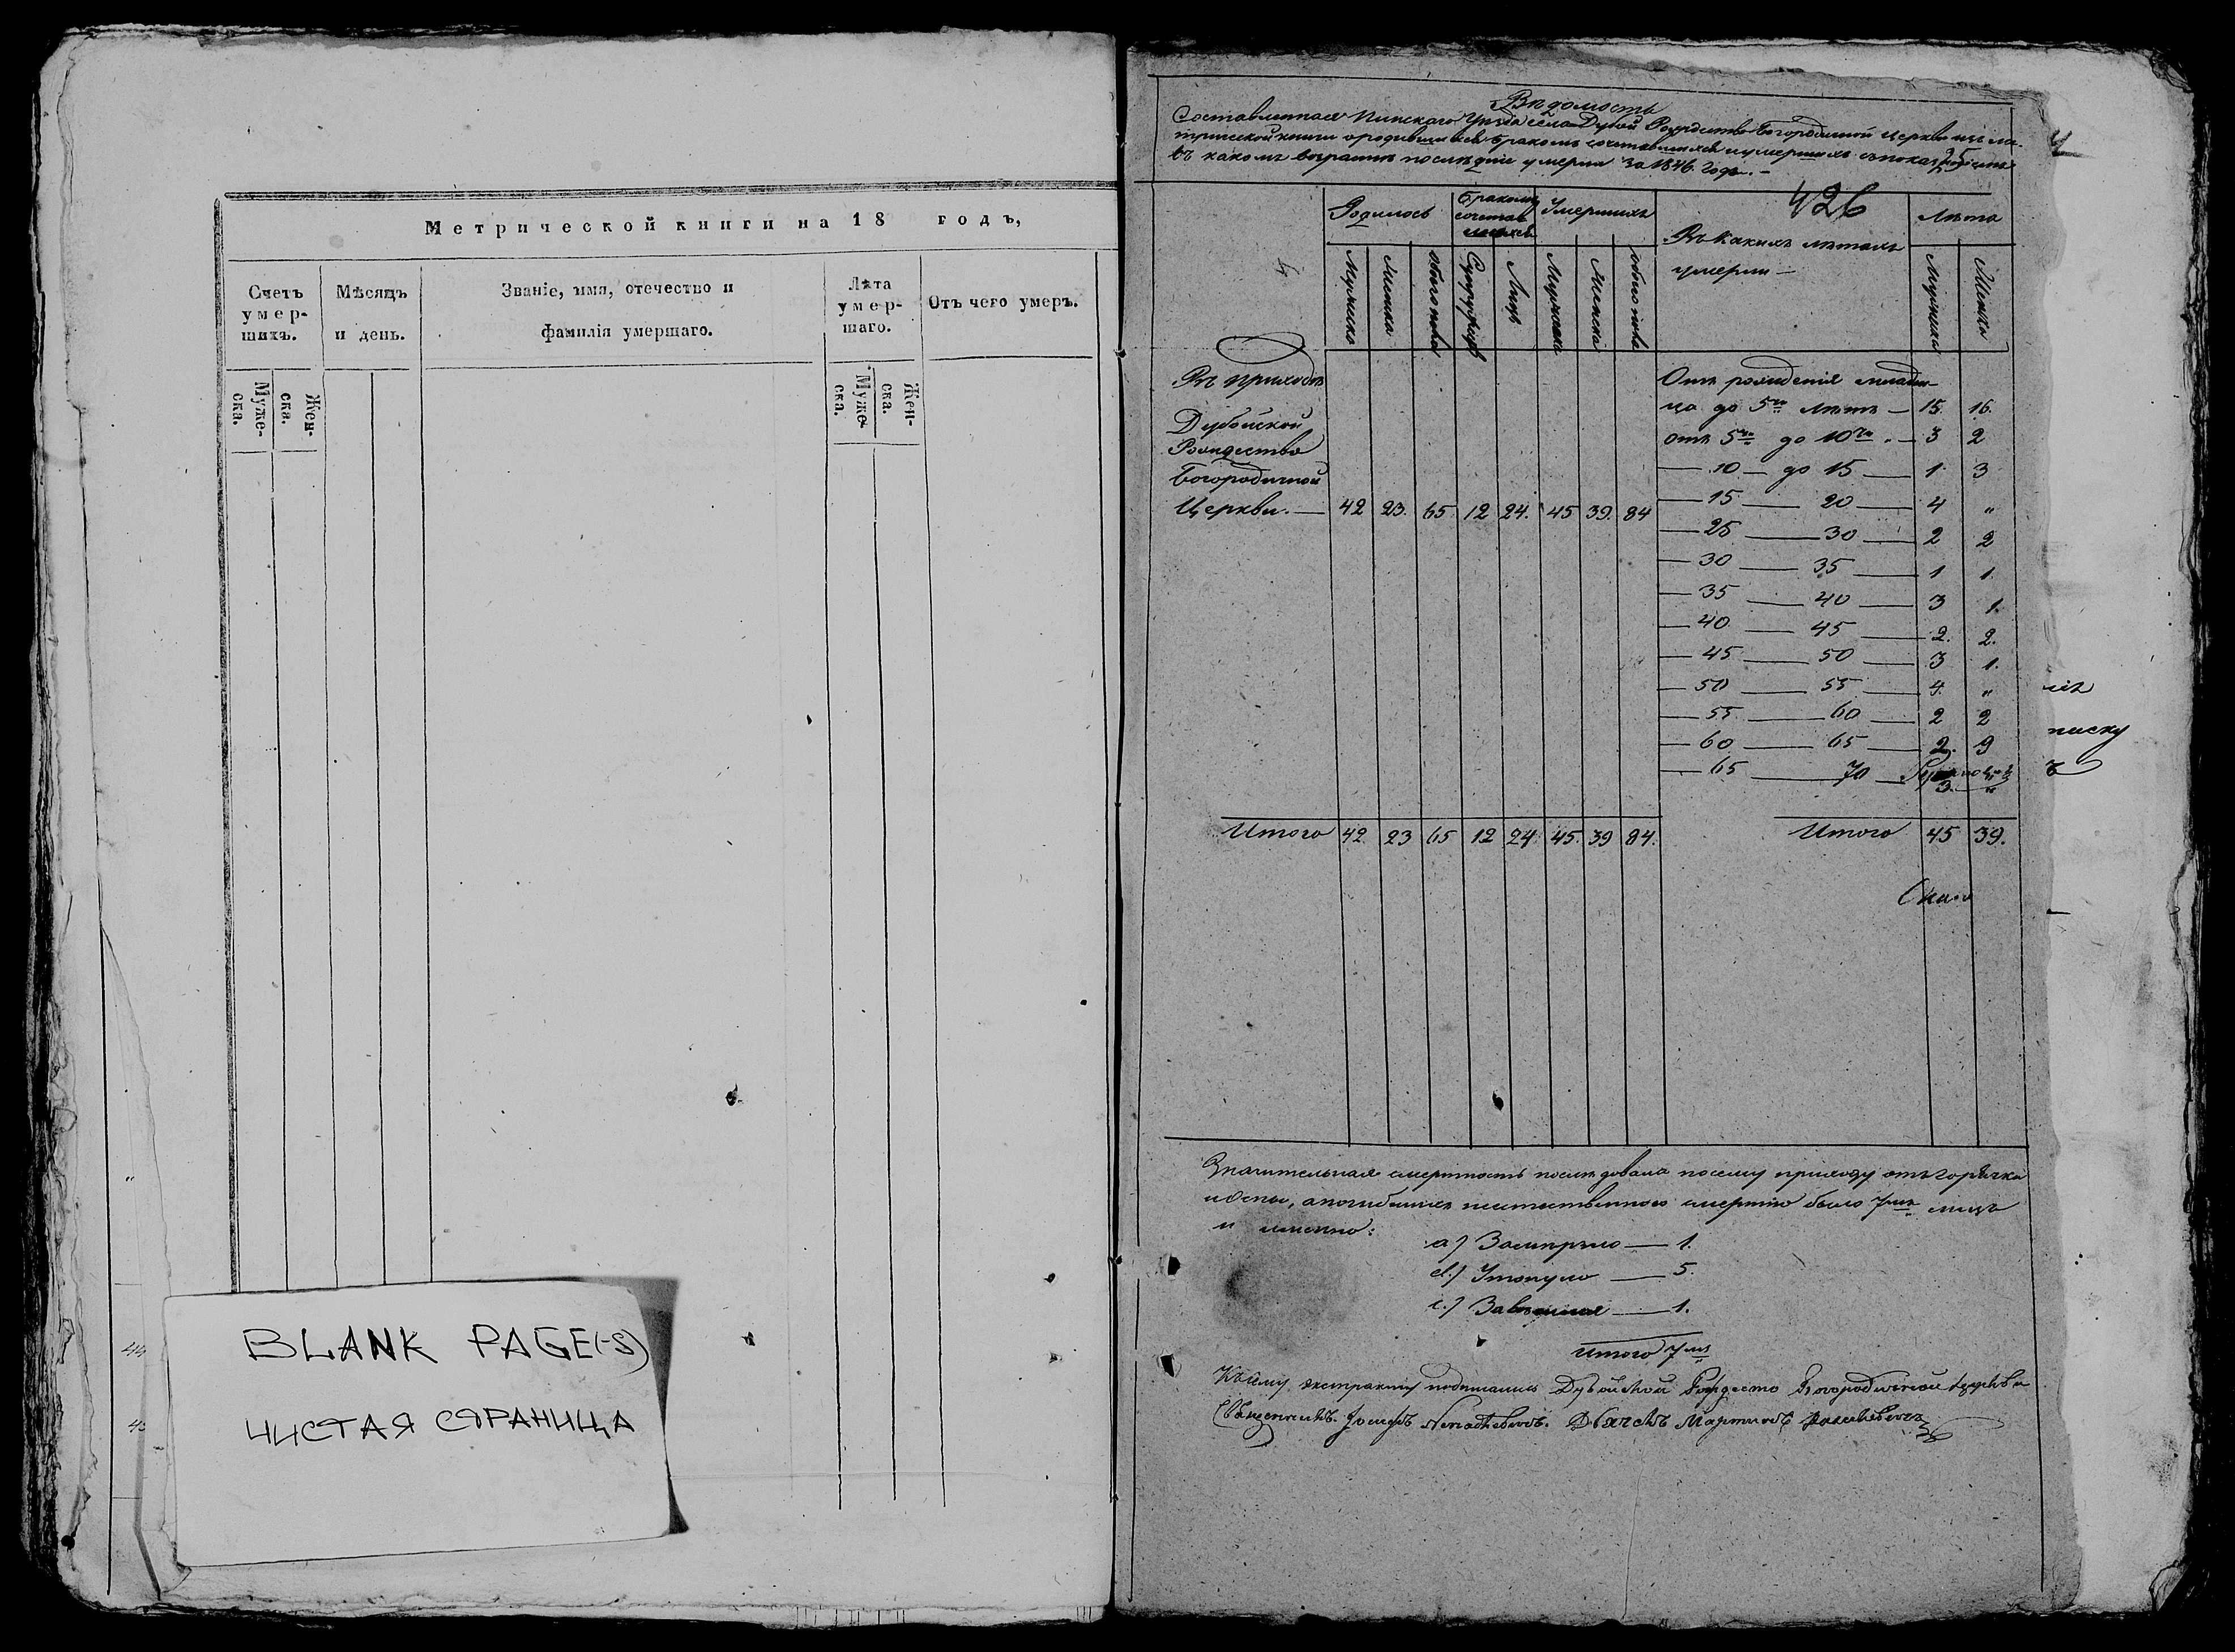 Метрической книги на 18 годъ,
Счетъ умер-шихъ.
Мѣсяцъ и день.
Званіе, имя, отечество и фамилія умершаго.
Лѣта умер-шаго.
Отъ чего умеръ.
Муже-ска.
Жен-ска.
Муже-ска.
Жен-ска.
BLANK PAGE(-S)
ЧИСТАЯ СТРАНИЦА
Вѣдомость
Составленная Пинскаго Уѣзда села Дубой Рождество Богородичной церкви изъ ме-
трической книги о родившихся бракомъ сочетавшихся и умершихъ съ показаніемъ
въ какомъ возрастѣ послѣдніе умерли за 1846. годъ.—
426
Родилось
Бракомъ сочетав шихся
Умершихъ
Въ какихъ лѣтахъ умерли —
Лѣта
Мужеска
Женска
обоего пола
Супружествъ
Лицъ
Мужеска
Женска
обоего пола
Мужеска
Женска
Въ приходѣ
Дубойской
Рождество
Богородичной
Церкви. — 42 23. 65 12 24. 45 39. 84
Отъ рожденія младен-
ца до 5ти лѣтъ — 15. 16.
отъ 5ти до 10ти — 3 2
— 10 — до 15 — 1. 3
— 15 — 20 — 4 „
— 25 — 30 — 2 2
— 30 — 35 — 1 1.
— 35 — 40 — 3 1.
— 40 — 45 — 2. 2.
— 45 — 50 — 3 1.
— 50 — 55 — 4. „
— 55 — 60 — 2 2
— 60 — 65 — 2. 9
— 65 — 70 — 3. „
Итого 42 23 65 12 24 45. 39 84.
Итого 45 39.
Значительная смертность послѣдовала по сему приходу отъ горячки
и оспы, а погибшихъ неестественною смертію было 7мь лицъ
и именно:
a) Замерзло — 1.
Утонуло — 5.
1.
Итого 7мь
Къ сему экстракту подписались Дубойской Рождество Богородичной церкви
Священникъ Іосифъ Дьячекъ Мартинъ